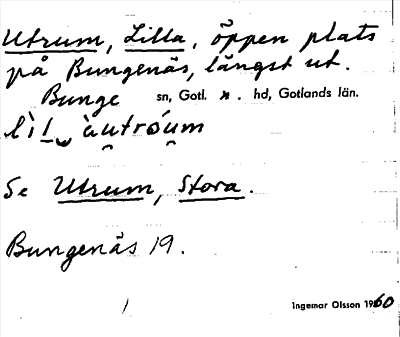 Utrum, Lilla, öppen plats
på Bungenäs, längst ut.
Bunge sn, Gotl. n. hd, Gotlands län.
Se Utrum, Stora.
Bungenäs 19.
1
Ingemar Olsson 1960